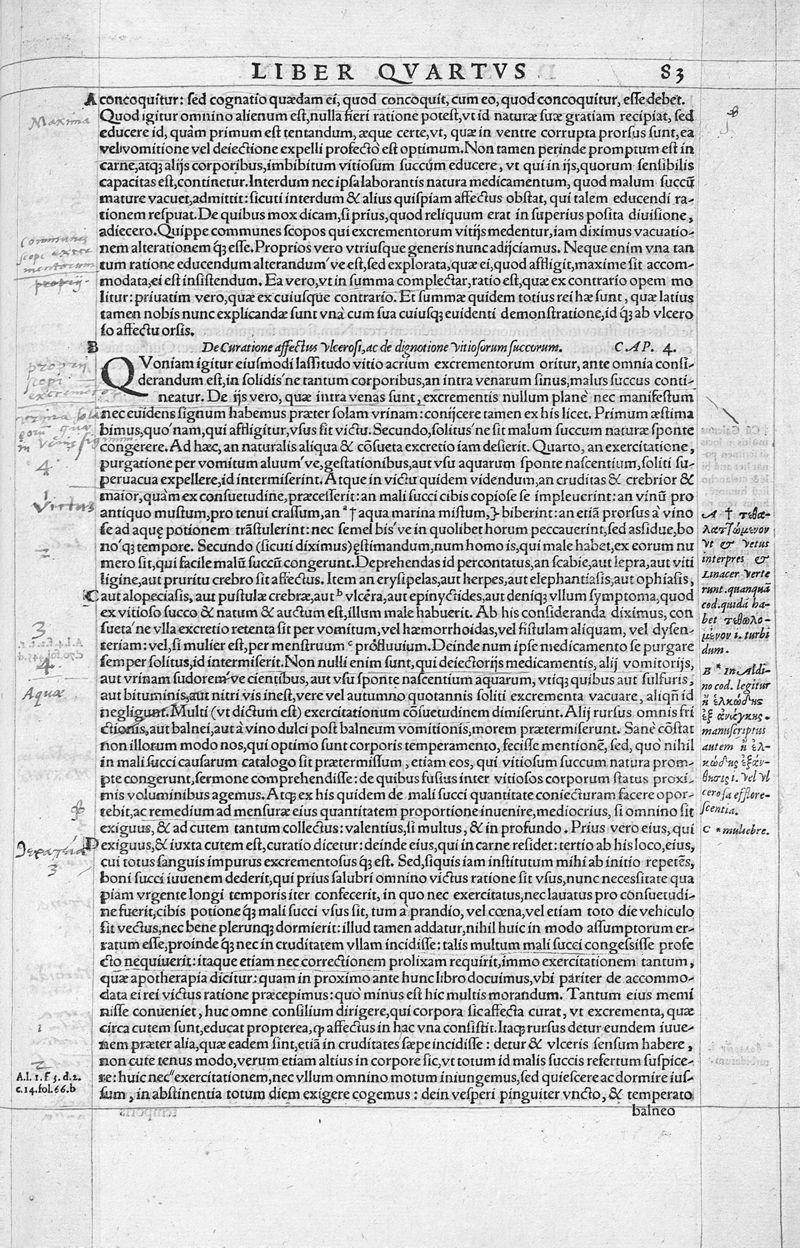 LIBER QVARTVS 83
A concoquitur: sed cognatio quædam ei, quod concoquit, cum eo, quod concoquitur, esse debet.
Quod igitur omnino alienum est, nulla fieri ratione potest, vt id naturæ suæ gratiam recipiat, sed
educere id, quàm primum est tentandum, æque certe, vt, quæ in ventre corrupta prorsus sunt, ea
vel vomitione vel deiectione expelli profectò est optimum. Non tamen perinde promptum est in
carne, atq; alijs corporibus, imbibitum vitiosum succum educere, vt qui in ijs, quorum sensibilis
capacitas est, continetur. Interdum nec ipsa laborantis natura medicamentum, quod malum succũ
mature vacuet, admittit: sicuti interdum & alius quispiam affectus obstat, qui talem educendi ra-
tionem respuat. De quibus mox dicam, si prius, quod reliquum erat in superius posita diuisione,
adiecero. Quippe communes scopos qui excrementorum vitijs medentur, iam diximus vacuatio-
nem alterationem q́; esse. Proprios vero vtriusque generis nunc adijciamus. Neque enim vna tan
tum ratione educendum alterandum´ve est, sed explorata, quæ ei, quod affligit, maxime sit accom-
modata, ei est insistendum. Ea vero, vt in summa complectar, ratio est, quæ ex contrario opem mo
litur: priuatim vero, quæ ex cuiusque contrario. Et summæ quidem totius rei hæ sunt, quæ latius
tamen nobis nunc explicandæ sunt vnà cum sua cuiusq; euidenti demonstratione, id q́; ab vlcero
so affectu orsis.
B De Curatione affectus vlcerosi, ac de dignotione vitiosorum succorum. CAP. 4.
QVoniam igitur eiusmodi lassitudo vitio acrium excrementorum oritur, ante omnia consi-
derandum est, in solidis´ne tantum corporibus, an intra venarum sinus, malus succus conti-
neatur. De ijs vero, quæ intra venas sunt, excrementis nullum planè nec manifestum
nec euidens signum habemus præter solam vrinam: conijcere tamen ex his licet. Primum æstima
bimus, quo´nam, qui affligitur, vsus sit victu. Secundo, solitus´ne sit malum succum naturæ sponte
congerere. Ad hæc, an naturalis aliqua & cõsueta excretio iam desierit. Quarto, an exercitatione,
purgatione per vomitum aluum´ve, gestationibus, aut vsu aquarum sponte nascentium, soliti su-
peruacua expellere, id intermiserint. Atque in victu quidem videndum, an cruditas & crebrior &
maior, quàm ex consuetudine, præcesserit: an mali succi cibis copiose se impleuerint: an vinũ pro
antiquo mustum, pro tenui crassum, an ᵃ † aqua marina mistum, } biberint: an etiã prorsus à vino
se ad aquę potionem trãstulerint: nec semel bis´ve in quolibet horum peccauerint, sed assidue, bo
no´q; tempore. Secundo (sicuti diximus) ęstimandum, num homo is, qui male habet, ex eorum nu
mero sit, qui facile malũ succũ congerunt. Deprehendas id percontatus, an scabie, aut lepra, aut viti
ligine, aut pruritu crebro sit affectus. Item an erysipelas, aut herpes, aut elephantiasis, aut ophiasis,
C aut alopeciasis, aut pustulæ crebræ, aut ᵇ vlcéra, aut epinyctides, aut deniq; vllum symptoma, quod
ex vitioso succo & natum & auctum est, illum male habuerit. Ab his consideranda diximus, con
sueta´ne vlla excretio retenta sit per vomitum, vel hæmorrhoidas, vel fistulam aliquam, vel dysen-
teriam: vel, si mulier est, per menstruum ᶜ profluuium. Deinde num ipse medicamento se purgare
semper solitus, id intermiserit. Non nulli enim sunt, qui deiectorijs medicamentis, alij vomitorijs,
aut vrinam sudorem´ve cientibus, aut vsu sponte nascentium aquarum, vtiq; quibus aut sulfuris,
aut bituminis, aut nitri vis inest, vere vel autumno quotannis soliti excrementa vacuare, aliqñ id
negligunt. Multi (vt dictum est) exercitationum cõsuetudinem dimiserunt. Alij rursus omnis fri
ctionis, aut balnei, aut à vino dulci post balneum vomitionis, morem prætermiserunt. Sanè cõstat
non illorum modo nos, qui optimo sunt corporis temperamento, fecisse mentionẽ, sed, quo nihil
in mali succi causarum catalogo sit prætermissum, etiam eos, qui vitiosum succum natura prom-
pte congerunt, sermone comprehendisse: de quibus fusius inter vitiosos corporum status proxi-
mis voluminibus agemus. Atq; ex his quidem de mali succi quantitate coniecturam facere opor-
tebit, ac remedium ad mensuræ eius quantitatem proportione inuenire, mediocrius, si omnino sit
exiguus, & ad cutem tantum collectus: valentius, si multus, & in profundo. Prius vero eius, qui
D exiguus, & iuxta cutem est, curatio dicetur: deinde eius, qui in carne residet: tertio ab his loco, eius,
cui totus sanguis impurus excrementosus q́; est. Sed, si quis iam institutum mihi ab initio repetẽs,
boni succi iuuenem dederit, qui prius salubri omnino victus ratione sit vsus, nunc necessitate qua
piam vrgente longi temporis iter confecerit, in quo nec exercitatus, nec lauatus pro consuetudi-
ne fuerit, cibis potione q́; mali succi vsus sit, tum a prandio, vel cœna, vel etiam toto die vehiculo
sit vectus, nec bene plerunq; dormierit: illud tamen addatur, nihil huic in modo assumptorum er-
ratum esse, proinde q́; nec in cruditatem vllam incidisse: talis multum mali succi congessisse profe
cto nequiuerit: itaque etiam nec correctionem prolixam requirit, immo exercitationem tantum,
quæ apotherapia dicitur: quam in proximo ante hunc libro docuimus, vbi pariter de accommo-
data ei rei victus ratione præcepimus: quò minus est hic multis morandum. Tantum eius memi
nisse conueniet, huc omne consilium dirigere, qui corpora sic affecta curat, vt excrementa, quæ
circa cutem sunt, educat propterea, q̨ affectus in hac vna consistit. Itaq; rursus detur eundem iuue-
nem præter alia, quæ eadem sint, etiã in cruditates sæpe incidisse: detur & vlceris sensum habere,
non cute tenus modo, verum etiam altius in corpore sic, vt totum id malis succis refertum suspice-
re: huic nec ᵈ exercitationem, nec vllum omnino motum iniungemus, sed quiescere ac dormire ius-
sum, in abstinentia totum diem exigere cogemus: dein vesperi pinguiter vncto, & temperato
balneo
Maxima
Communes
scopi excre
mentorum
proprij
proprij
scopi
4
1.
Victus
2.
3
4.
Aquæ
3
1
2
A.l. 1. f. 5. d. 2.
c. 14. fol. 66. b
A † τεθα-
λαττωμένον
vt & vetus
interpres &
Linacer verte
runt. quanquã
cod. quidã ha-
bet τεθολο-
μένον i. turbi
dum.
B * In Aldi-
no cod. legitur
ἢ ἑλκώδης
manuscriptus
autem ἢ ἑλ-
κώδης ἐξάν-
θησις i. vel vl
cerosa efflore-
scentia.
C * muliebre.